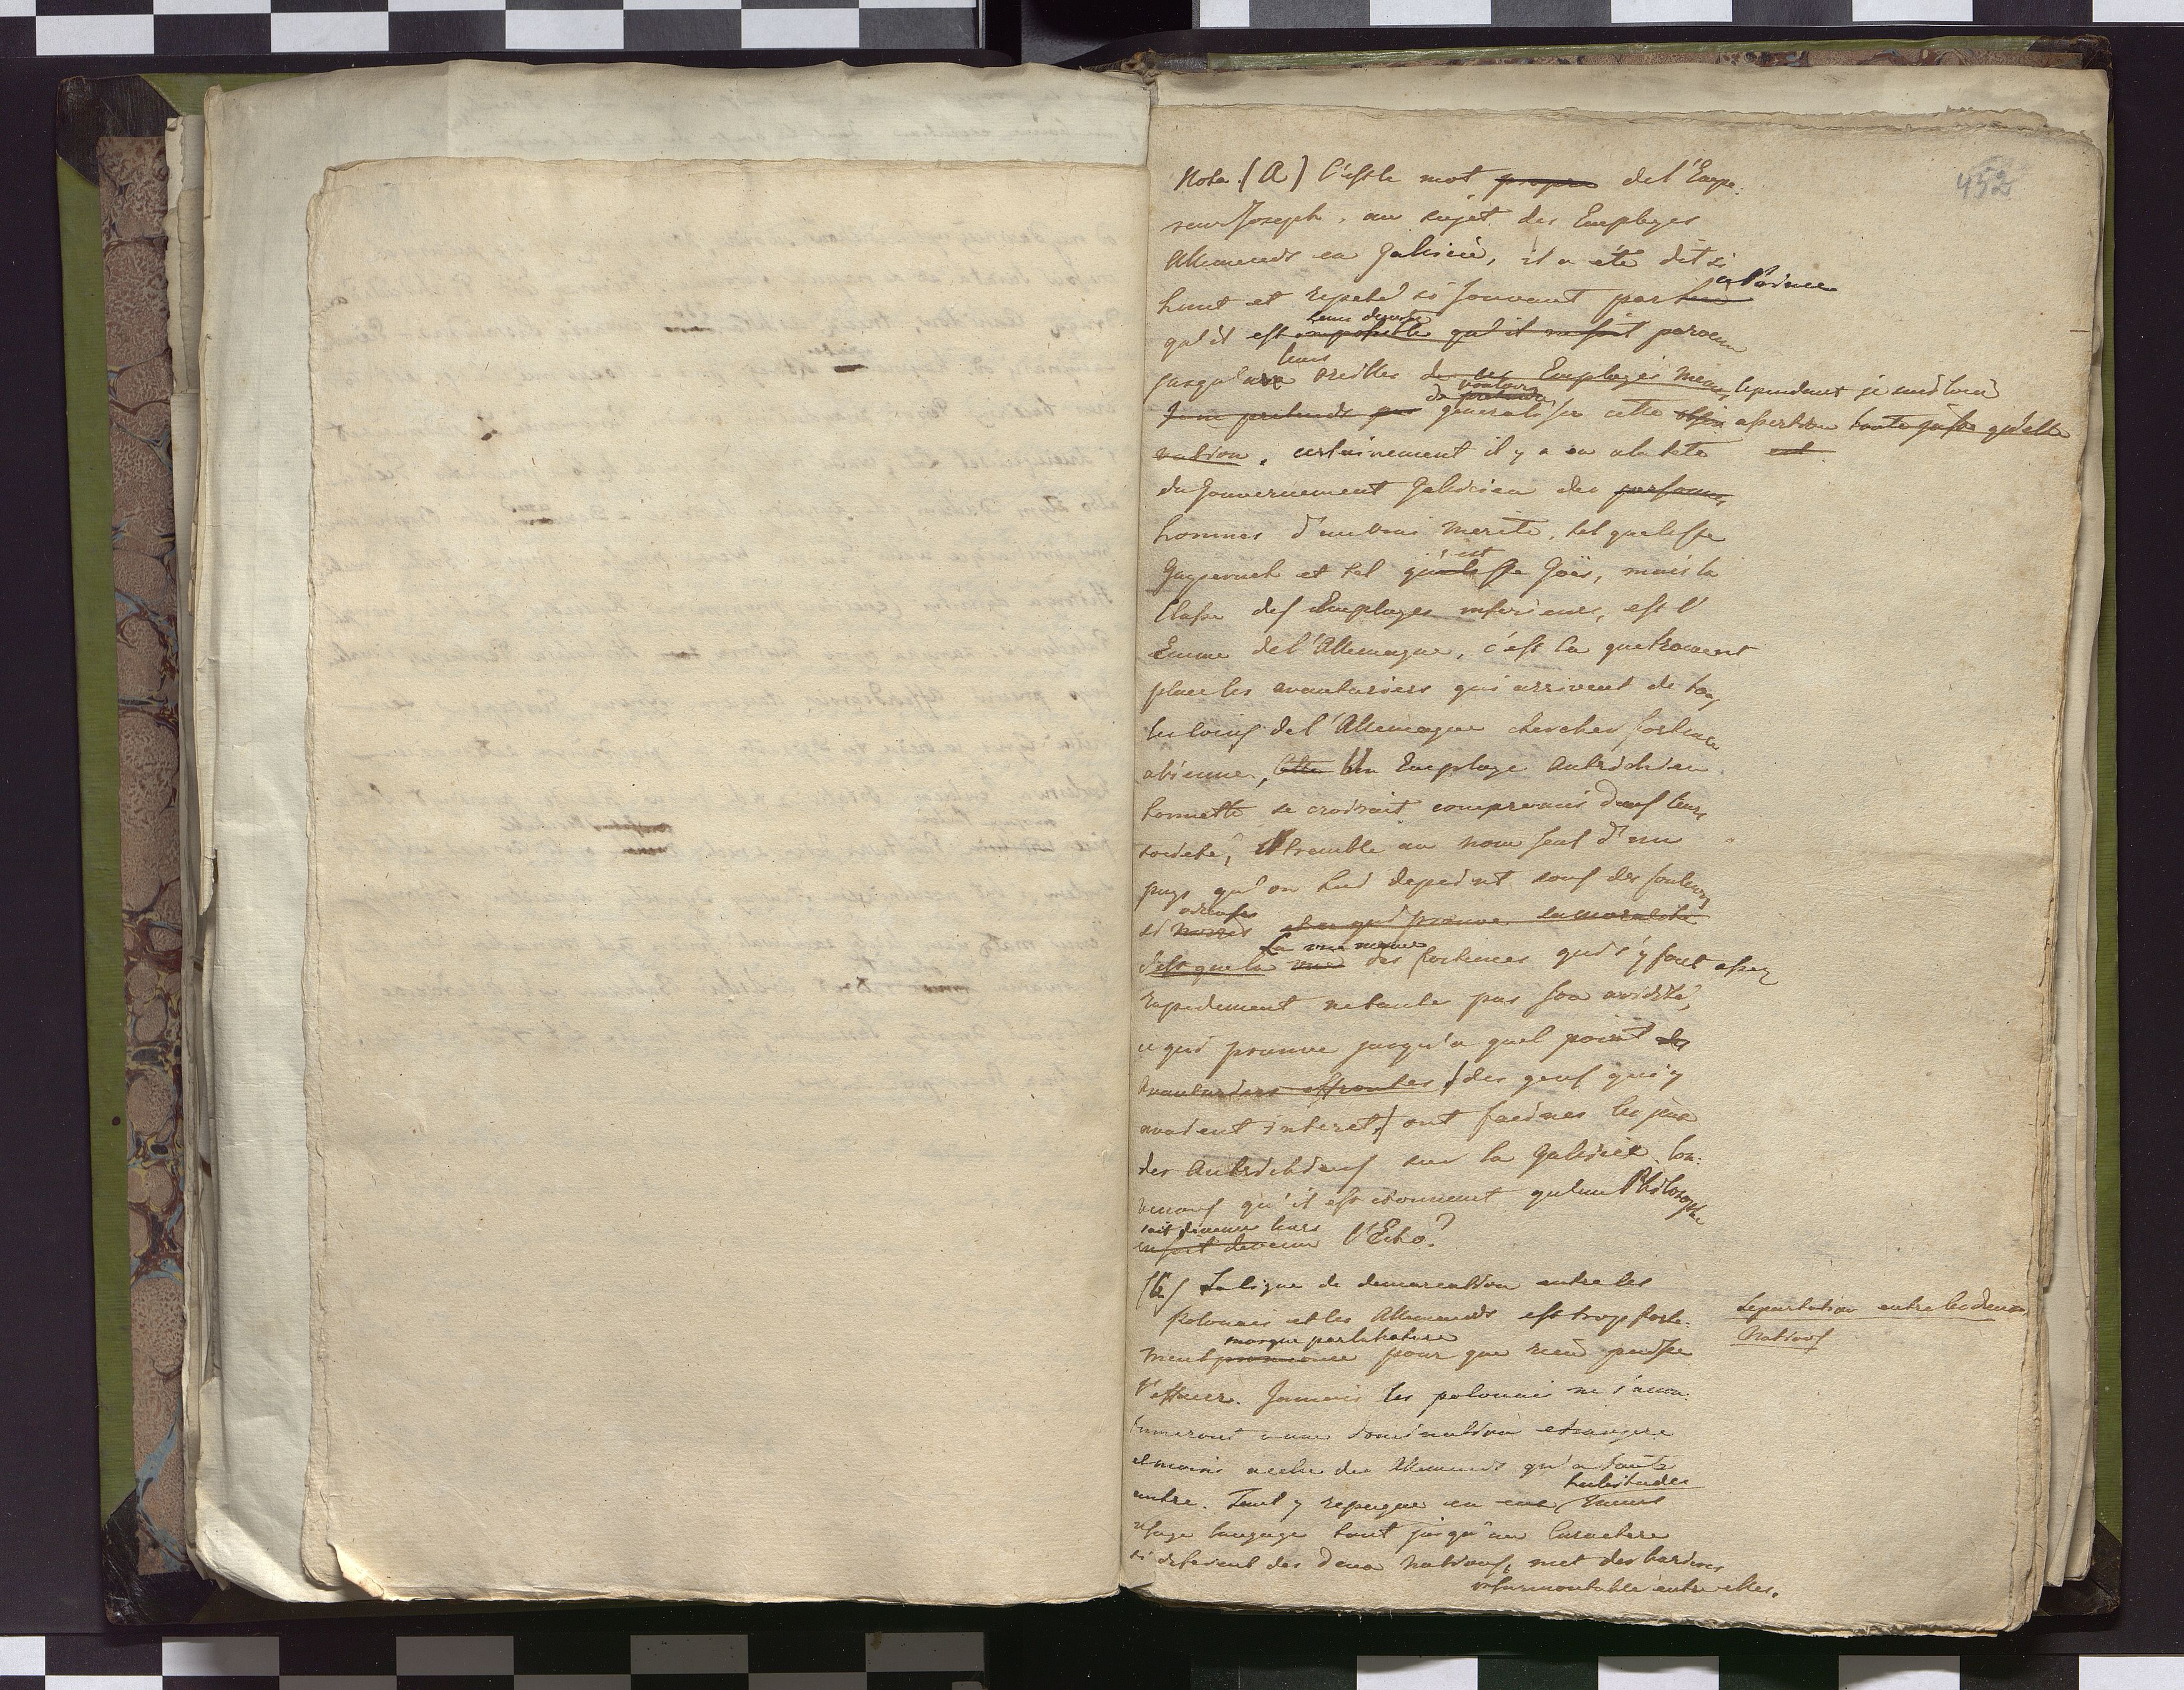 452
Nota (A) C'est le mot propre de l'Empe:
reur Joseph, au sujet des Employes
Allemands en Galicie, il a été dit si
haut et repeté si souvant par lui
qu'il est impossible qu'il ne soit parvenu
jusqu'aux leurs oreilles de ces Employés meme, cependant je suis loin
Je ne pretends pas de pretendre vouloir generaliser cette assertion toute juste qu'elle
nation, certainement il y a eu a la tete est
du Gouvernement Galicien des personnes
hommes d'un vrai merite, tel que le
et tel qu'est Goës, mais la
Classe des Employes inferieurs, est l'
Ecume de l'Allemagne, c'est la que trouvent
place les avanturiers qui arrivent de tous
les coins de l'Allemagne chercher fortune
a Vienne, Cette Un Employe Autrichien
honnette se croirait compromis dans leur
societé, Il tremble au nom seul d'un
pays qu'on lui depeint sous des couleurs
si noires odieuses et ce qui prouve sa moralité
c'est que la vue la vue meme des fortunes qui s'y font assez
rapidement ne tante pas son avidité,
ce qui prouve jusqu'a quel point des
avanturiers effrontes (des gens qui y
avoient interet) ont faciné les yeux
des Autrichiens sur la Galicie. Con:
venons qu'il est etonnant qu'un Philosophe
en soit devenu soit devenu leurs l'Echo?
(b) La ligne de demarcation entre les
Polonais et les Allemands est trop forte:
ment prononcée marque par la nature pour que rien puisse
l'effacer. Jamais les polonais ne s'accou:
tumeront a une domination etrangere
et moins a celle des Allemands qu'a toute
autre. Tout y repugne en eux, moeurs habitudes
usage langage tout jusqu'au Caractere
si different des deux Nations, met des barieres
insurmontable entre elles.
Separtation entre les deux
Nations